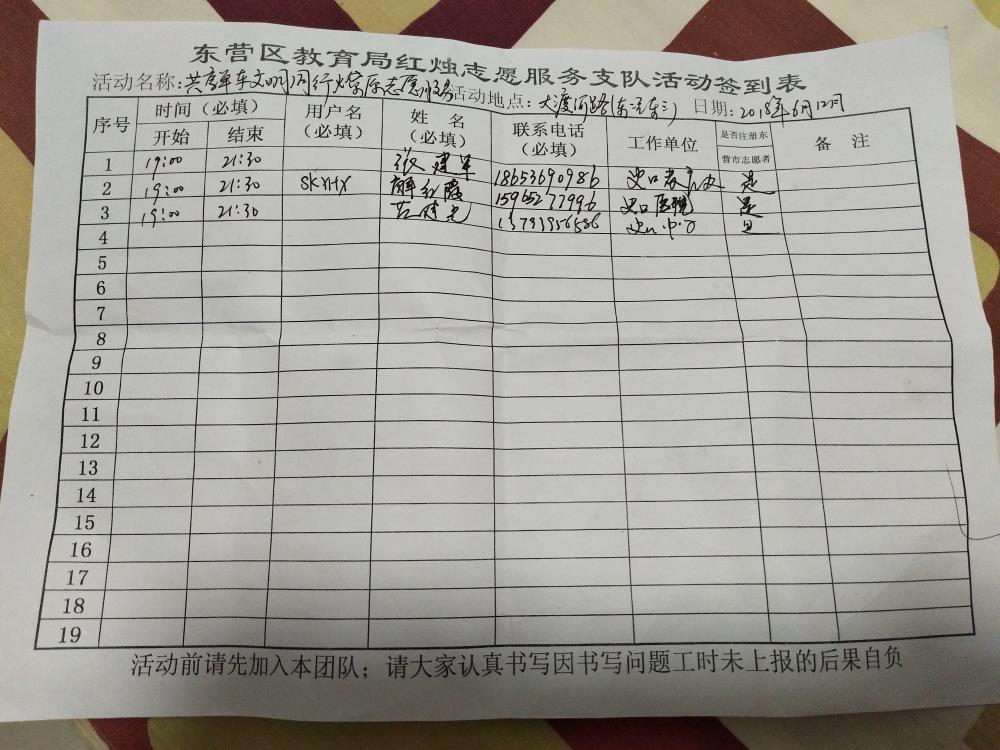 东营区教育局红烛志愿服务支队活动签到表
活动名称:共享单车文明同行燎原志愿服务 活动地点:大渡河路(东三) 日期:2018年6月12日
序号 时间(必填) 用户名(必填) 姓名(必填) 联系电话(必填) 工作单位 是否注册东营市志愿者 备注
开始 结束
1 19:00 21:30 张建军 18653690986 史口教育办 是
2 19:00 21:30 SKYHX 解红霞 15965277996 史口医院 是
3 19:00 21:30 史口中心 是
4
5
6
7
8
9
10
11
12
13
14
15
16
17
18
19
活动前请先加入本团队;请大家认真书写因书写问题工时未上报的后果自负